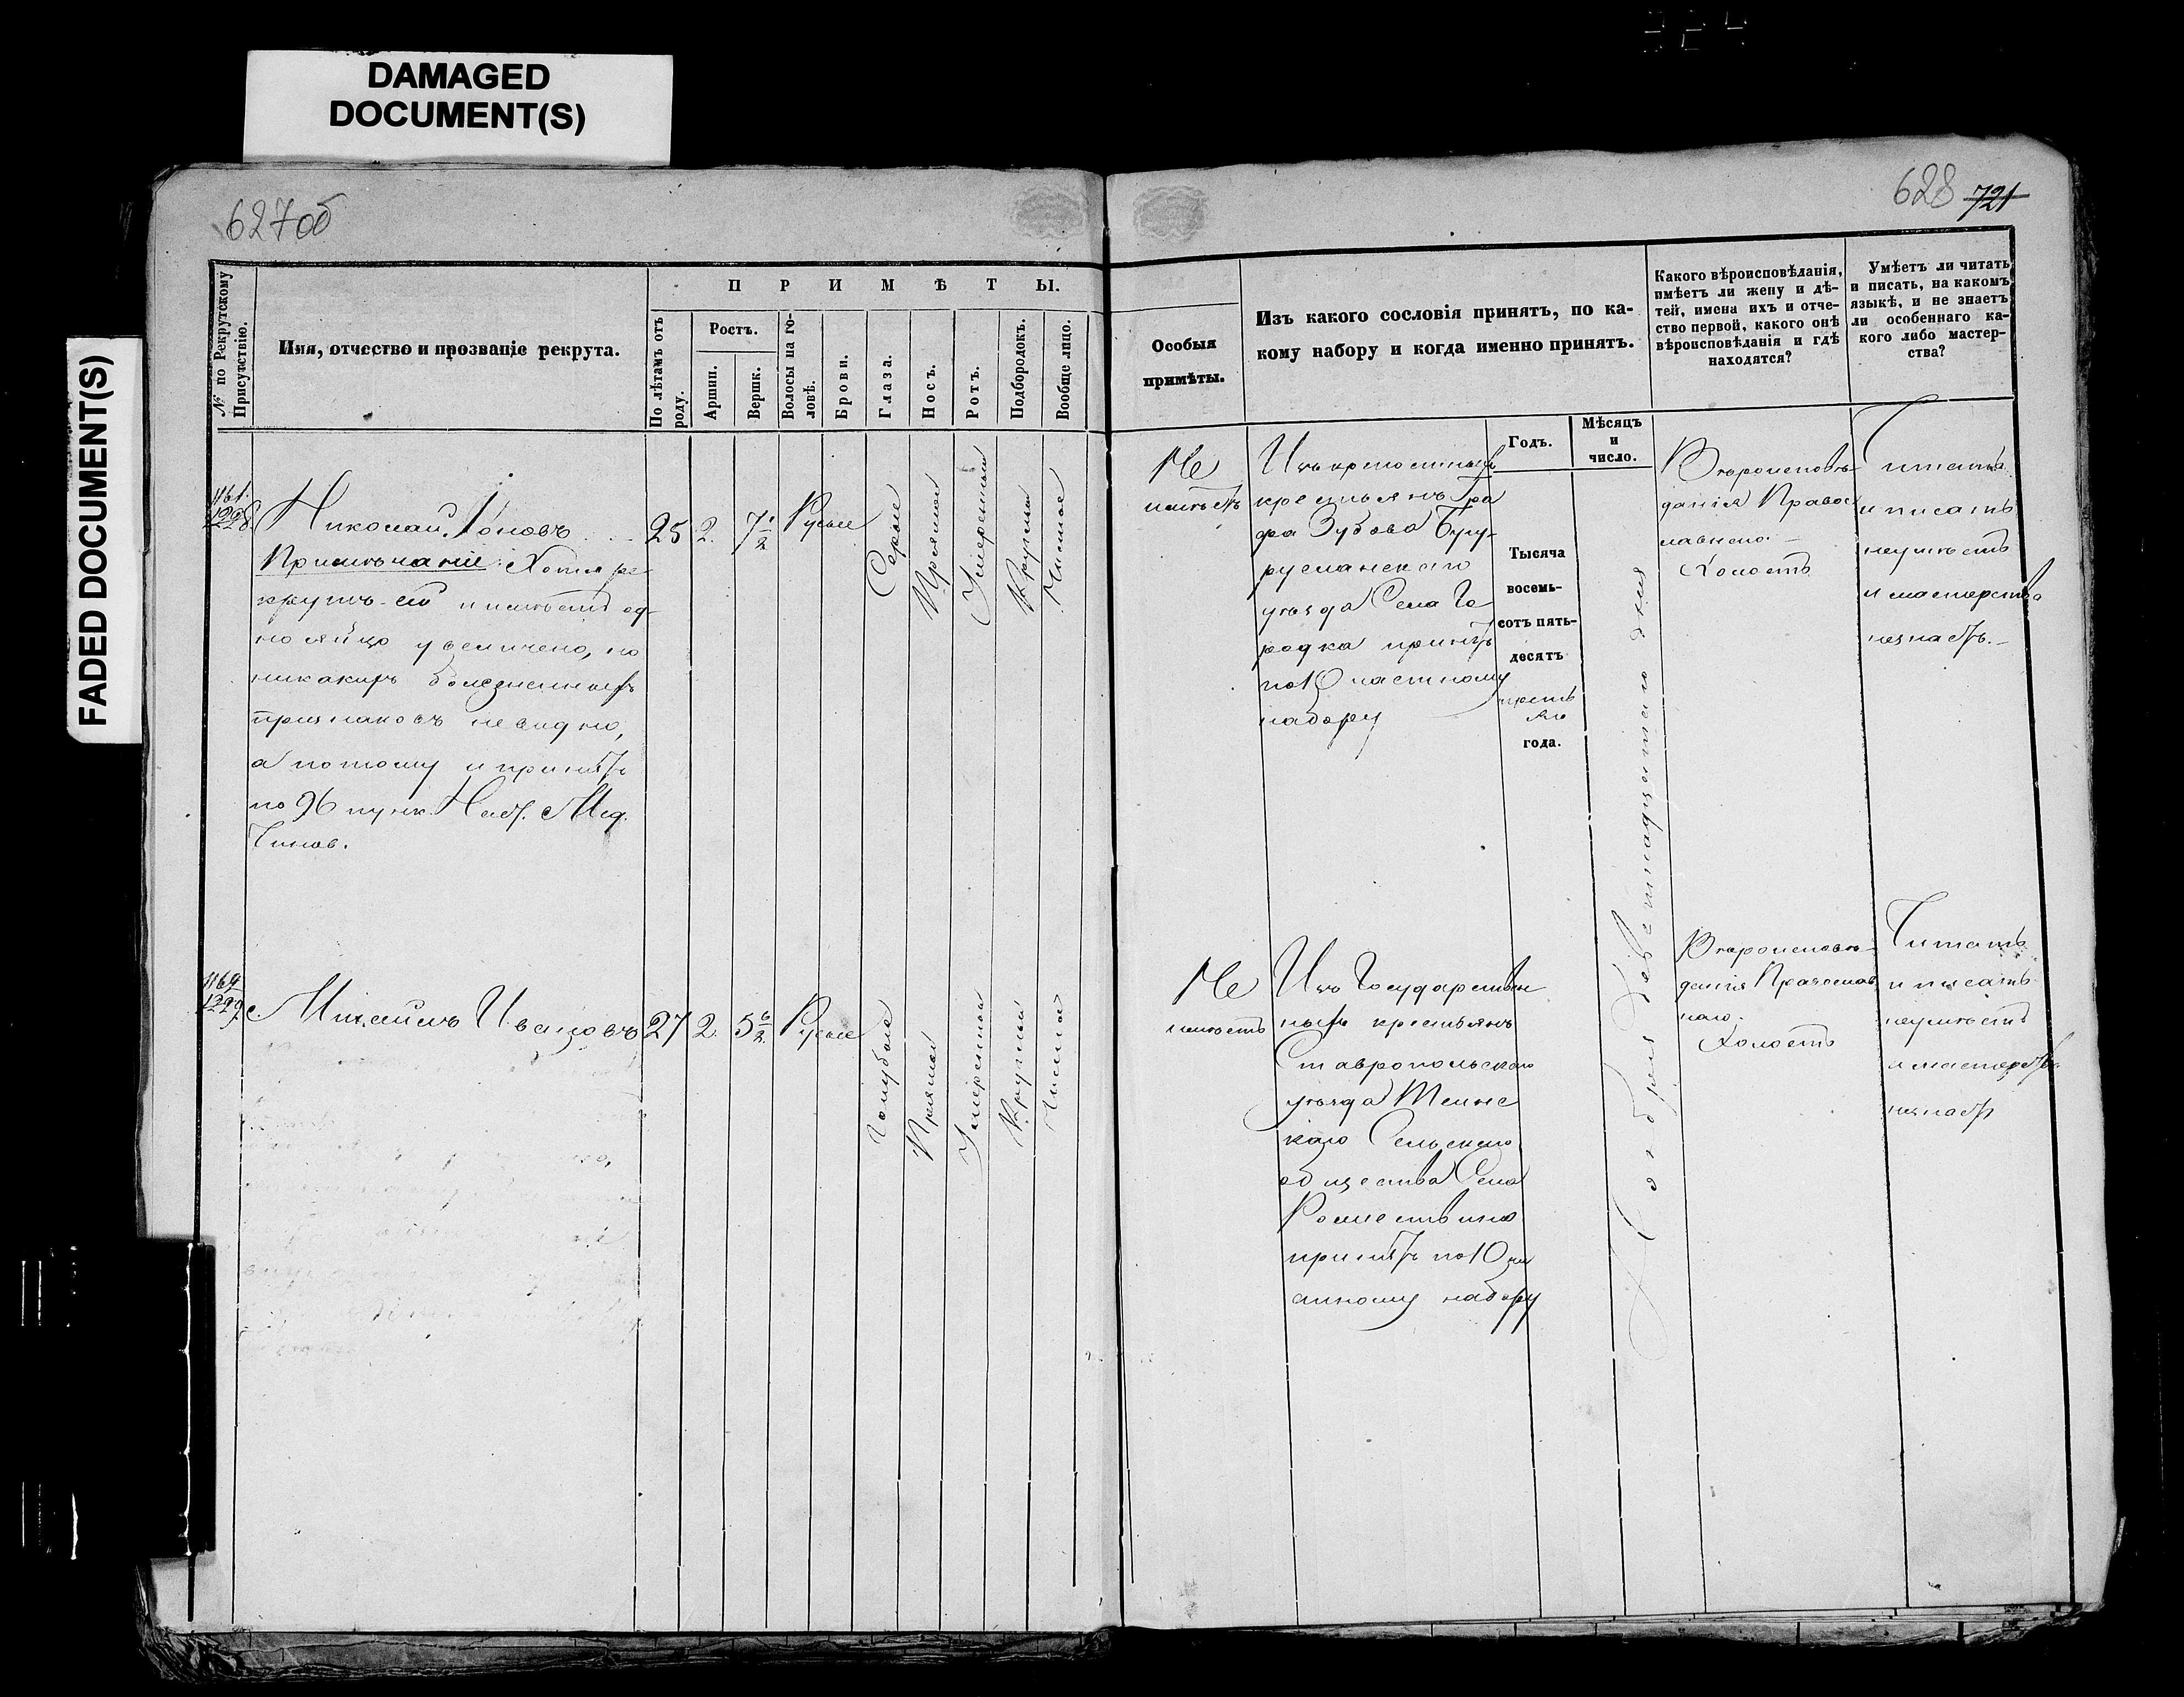 DAMAGED
DOCUMENT(S)
FADED DOCUMENT(S)
627об
628 721
№ по Рекрутскому
Присутствію.
Имя, отчество и прозваніе рекрута.
П Р И М Ѣ Т Ы.
По лѣтамъ отъ
роду.
Ростъ.
Аршин.
Вершк.
Волосы на го-
ловѣ.
Брови.
Глаза.
Носъ.
Ротъ.
Подбородокъ.
Вообще лицо.
Особыя
примѣты.
Изъ какого сословія принятъ, по ка-
кому набору и когда именно принятъ.
Годъ.
Мѣсяцъ
и
число.
Какого вѣроисповѣданія,
имѣетъ ли жену и дѣ-
тей, имена ихъ и отче-
ство первой, какого онѣ
вѣроисповѣданія и гдѣ
находятся?
Умѣетъ ли читать
и писать, на какомъ
языкѣ, и не знаетъ
ли особеннаго ка-
кого либо мастер-
ства?
1161.
1228.
Николай Іоновъ
Примѣчаніе: Хотя ре
крутъ сей и имѣетъ од-
но яйцо увеличено, но
никакихъ болезненныхъ
признаковъ невидно,
а потому и принятъ
по 96 пунк. Наст. Мед.
Чинов.
25
2.
7 1/2
Русые
Серые
Прямой
Умеренный
Круглый
Чистое
Не
имѣетъ
Изъ крепостныхъ
крестьянъ Гра
фа Зубова Бугу-
русланскаго
уѣзда Села Го
родка принятъ
по 10 частному
набору
Тысяча
восемь-
сотъ пять-
десятъ
года.
Ноября девятнадцатаго дня
Вѣроисповѣ-
данія Правос
лавнаго.
Холостъ
Читать
и писать
неумѣетъ
и мастерства
незнаетъ.
1229.
Михаилъ Ивановъ
27
2.
5 6/8
Русые
Голубые
Прямой
Умеренный
Круглый
Чистое
Не
имѣетъ
Изъ Государствен
ныхъ крестьянъ
Ставропольскаго
уѣзда
каго Сельскаго
общества Села
принятъ по 10 ча
стному набору
Вѣроисповѣ-
данія Православ
наго.
Холостъ
Читать
и писать
неумѣетъ
и мастерства
незнаетъ